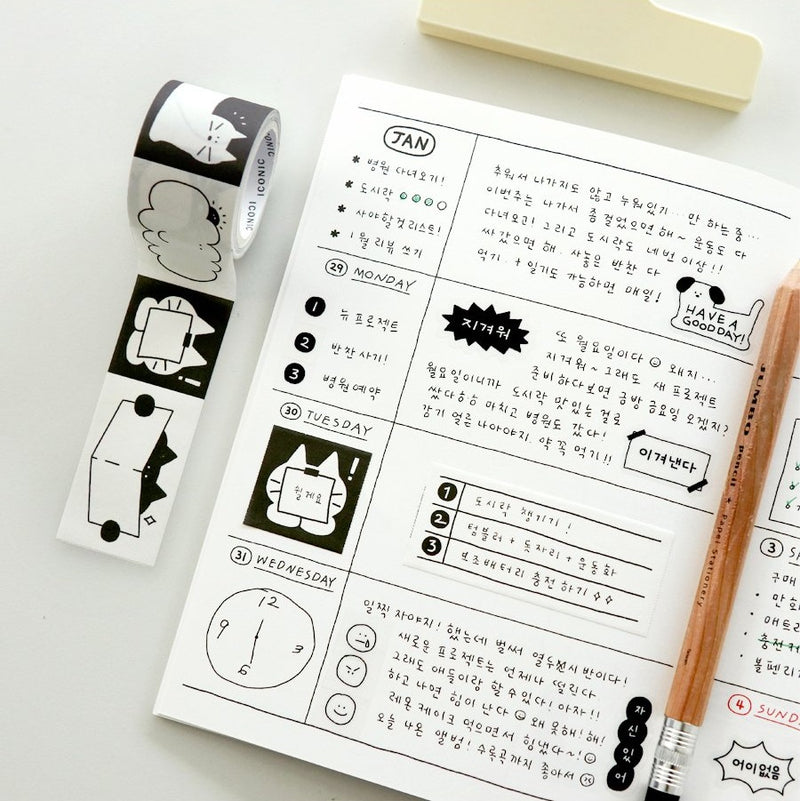 JAN
* 병원 다녀오기!
* 도시락
* 사야할것 리스트!
* 1월 리뷰 쓰기
추워서 나가지도 않고 누워있기... 만 하는 중...
이번주는 나가서 좀 걸었으면 해~ 운동도 다
다녀오고! 그리고 도시락도 네 번 이상!!
싸 갔으면 해. 사놓은 반찬 다
먹기. + 일기도 가능하면 매일!
HAVE A
GOOD DAY!
29 MONDAY
1 뉴 프로젝트
2 반찬 사기!
3 병원 예약
지겨워
또 월요일이다 왜지...
지겨워~ 그래도 새 프로젝트
준비하다보면 금방 금요일 오겠지?
월요일이니까 도시락 맛있는 걸로
쌌다 마치고 병원도 갔다!
감기 얼른 나아야지. 약 꼭 먹기!!
이겨낸다
30 TUESDAY
쉴게요
1 도시락 챙기기!
2 텀블러 + 돗자리 + 운동화
3 보조배터리 충전하기
31 WEDNESDAY
12
9
3
6
일찍 자야지! 했는데 벌써 열두시 반이다!
새로운 프로젝트는 언제나 떨린다
그래도 애들이랑 할 수 있다! 아자!!
하고 나면 힘이 난다 왜 못해! 해!
레몬 케이크 먹으면서 힘냈다~!
오늘 나온 앨범! 수록곡까지 좋아서
자신있어
3
구매
• 만화
• 매트
• 충전
• 볼펜
4 SUND
어이없음
JUMBO pencil + Papel Stationery
ICONIC
ICONIC